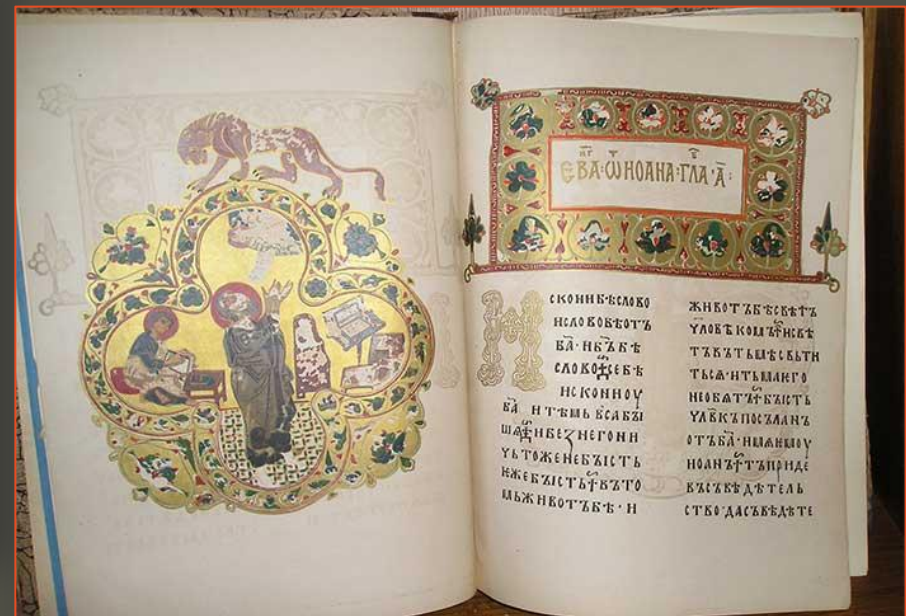 ЕВА҃·Ѡ ИОАНА·ГЛА·А҃:
ИСКОНИБѢСЛОВО
ИСЛОВОБѢОТЪ
БА҃·ИБ҃ЪБѢ
СЛОВО+СЕБѢ
ИСКОНИОУ
БА҃ ИТѢМЬВСАБЫ
ШѦ+ИБЕЗНЕГОНИ
ЧЬТОЖЕНЕБЫСТЬ
ѤЖЕБЫСТЬ+ВЪТО
МЬЖИВОТЪБѢ·И
ЖИВОТЪБѢСВѢТЪ
ЧЛОВѢКОМЪ+ИСВѢ
ТЪВЪТЬМѢСВЬТИ
ТЬСѦ·ИТЬМАѤГО
НЕОБѦТЪ+БЫСТЬ
ЧЛВ҃КЪПОСЪЛАНЪ
ОТЪБА҃·ИМѦѤМОУ
ИОАНЪ+ТЪПРИДЕ
ВЪСЪВѢДѢТЕЛЬ
СТВО·ДАСЪВѢДѢТЕ